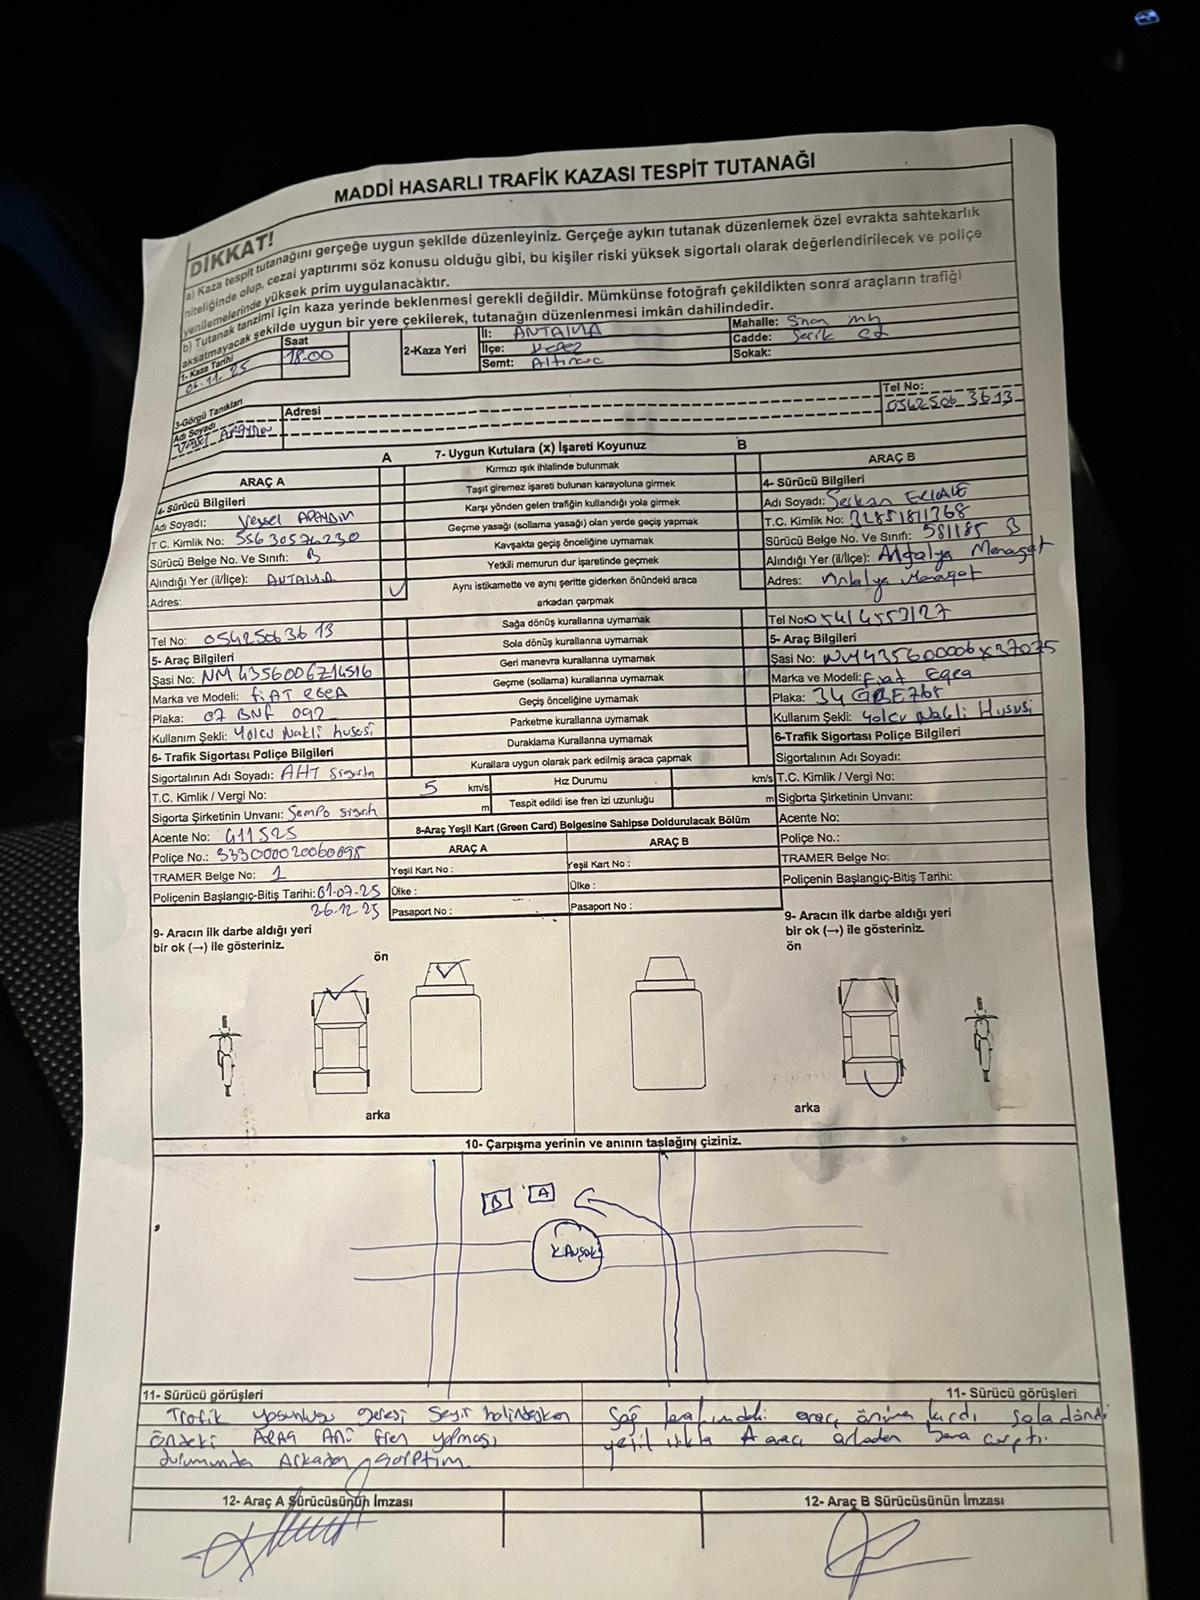 MADDİ HASARLI TRAFİK KAZASI TESPİT TUTANAĞI
DİKKAT!
a) Kaza tespit tutanağını gerçeğe uygun şekilde düzenleyiniz. Gerçeğe aykırı tutanak düzenlemek özel evrakta sahtekarlık
niteliğinde olup, cezai yaptırımı söz konusu olduğu gibi, bu kişiler riski yüksek sigortalı olarak değerlendirilecek ve poliçe
yenilemelerinde yüksek prim uygulanacaktır.
b) Tutanak tanzimi için kaza yerinde beklenmesi gerekli değildir. Mümkünse fotoğrafı çekildikten sonra araçların trafiği
aksatmayacak şekilde uygun bir yere çekilerek, tutanağın düzenlenmesi imkân dahilindedir.
1- Kaza Tarihi
Saat
18.00
2-Kaza Yeri
İl: ANTALYA
İlçe: Kepez
Semt:
Mahalle: Sinan mh
Cadde: Serik cd
Sokak:
3-Görgü Tanıkları
Adı Soyadı
Adresi
Tel No:
0542506 3613
A
7- Uygun Kutulara (x) İşareti Koyunuz
B
Kırmızı ışık ihlalinde bulunmak
Taşıt giremez işareti bulunan karayoluna girmek
Karşı yönden gelen trafiğin kullandığı yola girmek
Geçme yasağı (sollama yasağı) olan yerde geçiş yapmak
Kavşakta geçiş önceliğine uymamak
Yetkili memurun dur işaretinde geçmek
Aynı istikamette ve aynı şeritte giderken önündeki araca
arkadan çarpmak
Sağa dönüş kurallarına uymamak
Sola dönüş kurallarına uymamak
Geri manevra kurallarına uymamak
Geçme (sollama) kurallarına uymamak
Geçiş önceliğine uymamak
Parketme kurallarına uymamak
Duraklama Kurallarına uymamak
Kurallara uygun olarak park edilmiş araca çapmak
5 km/s Hız Durumu km/s
m Tespit edildi ise fren izi uzunluğu m
ARAÇ A
4- Sürücü Bilgileri
Adı Soyadı: Veysel APAYDIN
T.C. Kimlik No: 55630574230
Sürücü Belge No. Ve Sınıfı: B
Alındığı Yer (il/İlçe): ANTALYA
Adres:
Tel No: 0542506 36 13
5- Araç Bilgileri
Şasi No: NM4356006Z14516
Marka ve Modeli: FİAT EGEA
Plaka: 07 BNF 092
Kullanım Şekli: Yolcu Nakli hususi
6- Trafik Sigortası Poliçe Bilgileri
Sigortalının Adı Soyadı: AHT Sigorta
T.C. Kimlik / Vergi No:
Sigorta Şirketinin Unvanı: Sompo sigorta
Acente No: 411525
Poliçe No.: 333000020060898
TRAMER Belge No: 1
Poliçenin Başlangıç-Bitiş Tarihi: 01-07-25
26.12.25
ARAÇ B
4- Sürücü Bilgileri
Adı Soyadı: Serkan
T.C. Kimlik No:
Sürücü Belge No. Ve Sınıfı: 581185 B
Alındığı Yer (il/İlçe): Antalya Manavgat
Adres: Antalya Manavgat
Tel No: 05414553127
5- Araç Bilgileri
Şasi No: NM435600006X37075
Marka ve Modeli: Fiat Egea
Plaka: 34 GBE768
Kullanım Şekli: Yolcu Nakli Hususi
6-Trafik Sigortası Poliçe Bilgileri
Sigortalının Adı Soyadı:
T.C. Kimlik / Vergi No:
Sigorta Şirketinin Unvanı:
Acente No:
Poliçe No.:
TRAMER Belge No:
Poliçenin Başlangıç-Bitiş Tarihi:
8-Araç Yeşil Kart (Green Card) Belgesine Sahipse Doldurulacak Bölüm
ARAÇ A
ARAÇ B
Yeşil Kart No :
Yeşil Kart No :
Ülke :
Ülke :
Pasaport No :
Pasaport No :
9- Aracın ilk darbe aldığı yeri
bir ok (→) ile gösteriniz.
ön
arka
9- Aracın ilk darbe aldığı yeri
bir ok (→) ile gösteriniz.
ön
arka
10- Çarpışma yerinin ve anının taslağını çiziniz.
B A
KAVŞAK
11- Sürücü görüşleri
Trafik yoğunluğu gereği Seyir halindeyken
Öndeki ARAÇ ANİ fren yapması
durumunda Arkadan çarptım.
11- Sürücü görüşleri
Sağ tarafımdaki araç önüme kırdı sola döndü
yeşil ışıkta A aracı arkadan bana çarptı.
12- Araç A Sürücüsünün İmzası
12- Araç B Sürücüsünün İmzası